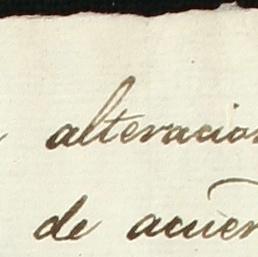 alteracion
de acuer